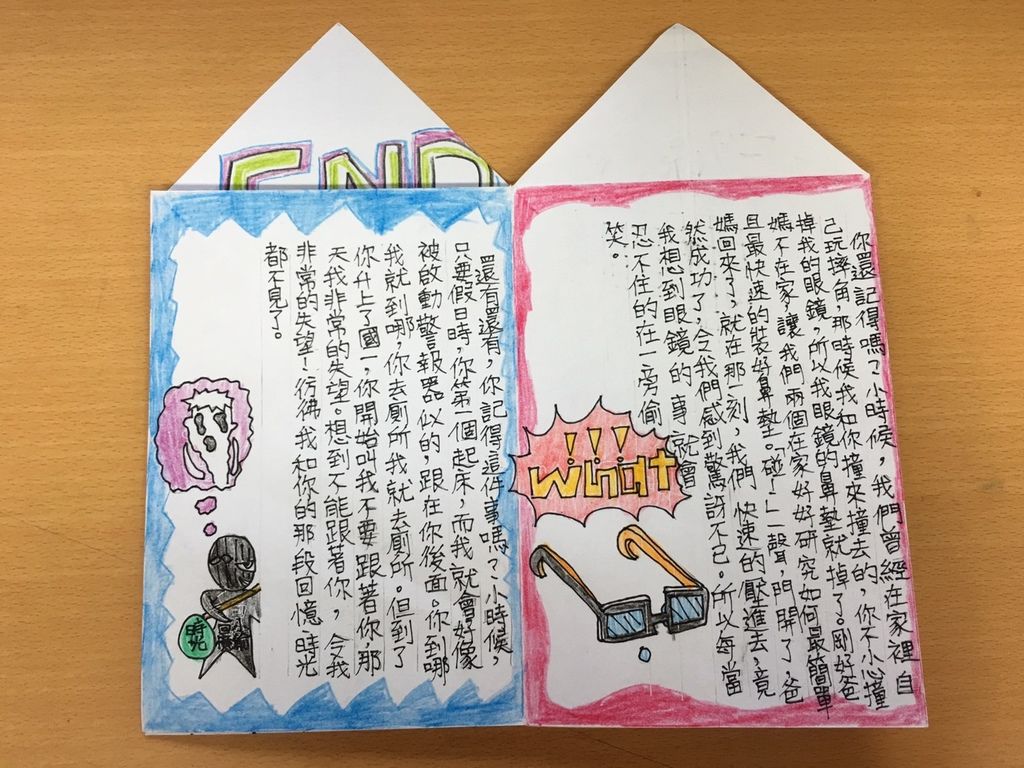 END
你還記得嗎？小時候，我們曾經在家裡自
己玩摔角，那時候我和你撞來撞去的，你不小心撞
掉我的眼鏡，所以我眼鏡的鼻墊就掉了。剛好爸
媽不在家，讓我們兩個在家好好研究如何最簡單
且最快速的裝好鼻墊。「碰！」一聲，門開了，爸
媽回來了，就在那一刻，我們快速的壓進去，竟
然成功了，令我們感到驚訝不已。所以每當
我想到眼鏡的事就會
忍不住的在一旁偷
笑。
!!!
what
還有還有，你記得這件事嗎？小時候，
只要假日時，你第一個起床，而我就會好像
被啟動警報器似的跟在你後面。你到哪
我就到哪，你去廁所我就去廁所。但到了
你升上了國一，你開始叫我不要跟著你那
天我非常的失望。想到不能跟著你，令我
非常的失望！彷彿我和你的那段回憶時光
都不見了。
時光